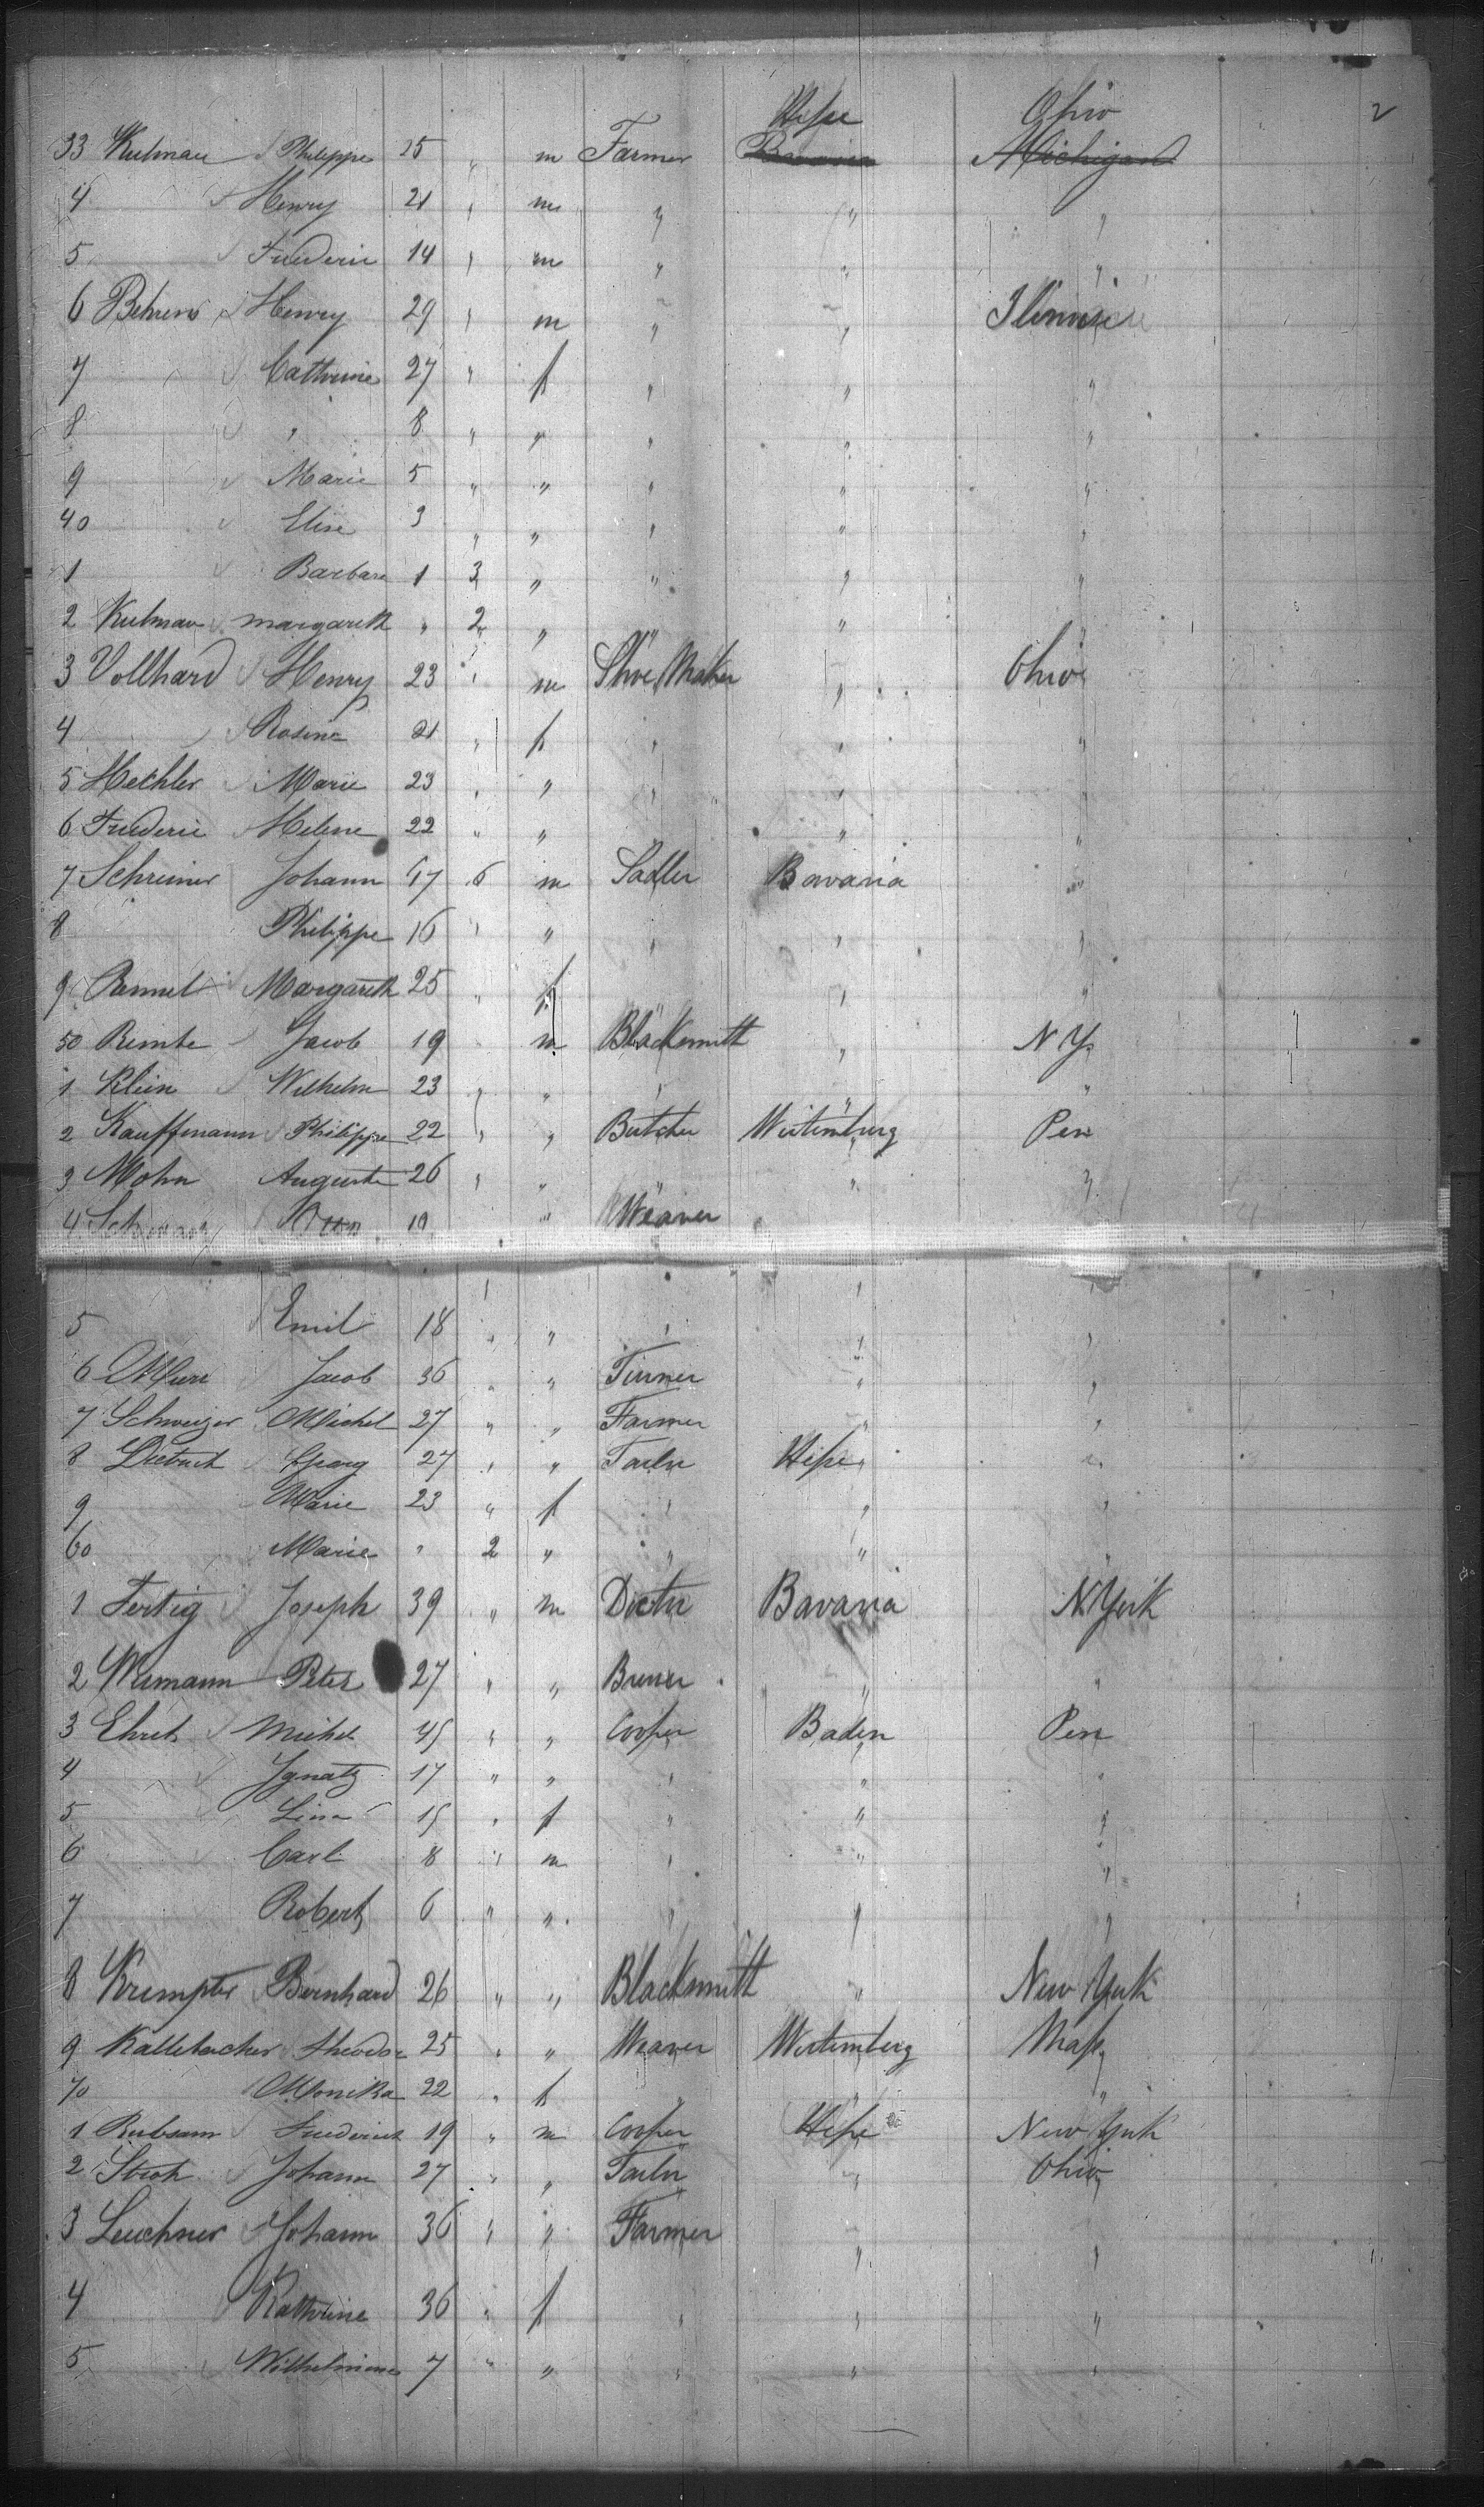 2
Hesse Ohio
33 Kulman Philippe 25 " m Farmer Bavaria Michigan
4 Henry 21 " m " " "
5 Frederic 14 " m " " "
6 Behrens Henry 29 " m " " Ilinois
7 Cathrine 27 " f " " "
8 " 8 " " " " "
9 Marie 5 " " " " "
40 Elise 3 " " " " "
1 Barbara 1 3 " " " "
2 Kulman margareth " 2 " " " "
3 Vollhard Henry 23 " m Shoe Maker " Ohio
4 Rosine 21 " f " " "
5 Hechler Marie 23 " " " " "
6 Frederic Helene 22 " " " "
7 Schreiner Johann 17 6 m Sadler Bavaria "
8 Philippe 16 " " " " "
9 Margareth 25 " f " " "
50 Jacob 19 m Blacksmith " N Y.
1 Klein Wilhelm 23 " " " " "
2 Kauffmann Philippe 22 " " Butcher Wirtemburg Pen
3 Mohn Auguste 26 " " " " "
4 Schwarz Otto 19 " Weaver
5 Emil 18 " " " " "
6 Jacob 36 " " Turner " "
7 Schweizer Michel 27 " " Farmer " "
8 Dietrich Georg 27 " " Tailor Hesse "
9 Marie 23 " f " " "
60 Marie " 2 " " " "
1 Fertig Joseph 39 " m Doctor Bavaria N York
2 Peter 27 " " Brewer " "
3 Ehret Michel 45 " " Cooper Baden Pen
4 Ignatz 17 " " " " "
5 Lina 15 " f " " "
6 Carl 8 " m " " "
7 Robert 6 " " " " "
8 Krempter Bernhard 26 " " Blacksmith " New York
9 Kallebacher Theodor 25 " " Weaver Wirtemberg Mass
70 Monika 22 " f " " "
1 Rubsam Frederick 19 " m Cooper Hesse New York
2 Stroh Johann 27 " " Tailor " Ohio
3 Leuchner Johann 36 " " Farmer " "
4 Kathrine 36 " f " " "
5 Wilhelmine 7 " " " " "